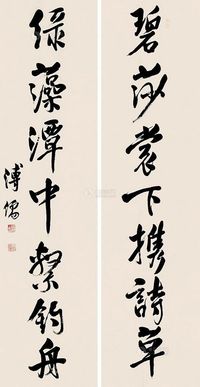 碧莎裳下携詩草
綠藻潭中繫釣舟
溥儒